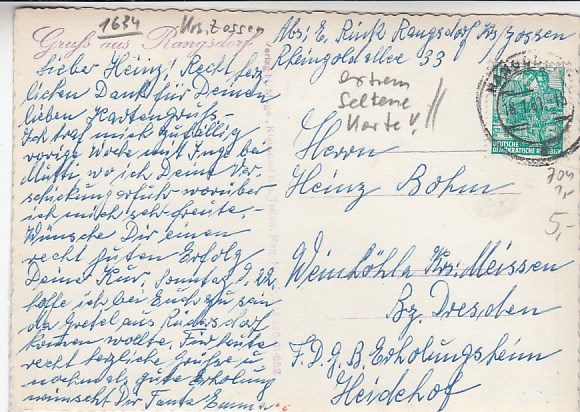 1634
Krs. Zossen
Gruß aus Rangsdorf
Abs: E. Rink Rangsdorf Krs/Zossen
Rheingoldallee 33
extrem
Seltene
Karte!
Lieber Heinz! Recht herz
lichen Dank für Deinen
lieben Kartengruß.-
Ich traf mich zufällig
vorige Woche mit Inge bei
Mutti, wo ich Deine Ver-
schickung erfuhr worüber
ich mich sehr freute.-
Wünsche Dir einen
recht guten Erfolg
Deine Kur. Sonntag d. 22.
hoffe ich bei Euch zu sein
da Gretel aus Rüdersdorf
kommen wollte. Für heute
recht herzliche Grüße u
nochmals gute Erholung
wünscht Dir Tante Emma
Herrn
Heinz Bohm
Weinböhla Krs: Meissen
Bz. Dresden
F.D.G.B. Erholungsheim
Heidehof
DEUTSCHE
DEMOKRATISCHE REPUBLIK
5,-